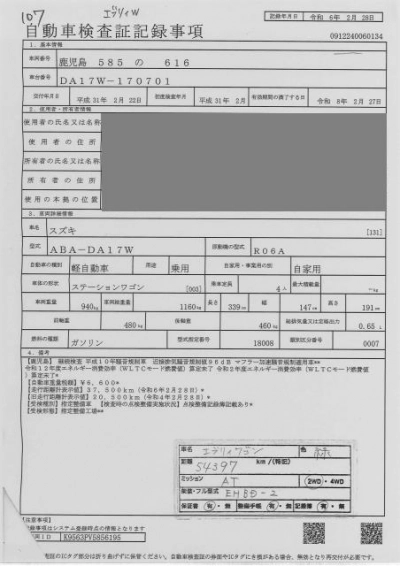 107
エブリイW
記録年月日 令和 6年 2月 28日
自動車検査証記録事項
0912240060134
1.基本情報
車両番号 鹿児島 585 の 616
車台番号 DA17W-170701
交付年月日 平成 31年 2月 22日 初度検査年月 平成 31年 2月 有効期間の満了する日 令和 8年 2月 27日
2.使用者・所有者情報
使用者の氏名又は名称
使用者の住所
所有者の氏名又は名称
所有者の住所
使用の本拠の位置
3.車両詳細情報
車名 スズキ [131]
型式 ABA-DA17W 原動機の型式 R06A
自動車の種別 軽自動車 用途 乗用 自家用・事業用の別 自家用
車体の形状 ステーションワゴン [003] 乗車定員 4人 最大積載量 kg
車両重量 940kg 車両総重量 1160kg 長さ 339cm 幅 147cm 高さ 191cm
前軸重 480kg 後軸重 460kg 総排気量又は定格出力 0.65 L
燃料の種類 ガソリン 型式指定番号 18008 類別区分番号 0007
4.備考
【鹿児島】 継続検査 平成10年騒音規制車 近接排気騒音規制値96dB マフラー加速騒音規制適用車**
令和12年度エネルギー消費効率(WLTCモード燃費値)算定未了 令和2年度エネルギー消費効率(WLTCモード燃費値)
算定未了*
【自動車重量税額】¥6,600*
【走行距離計表示値】37,500km(令和6年2月28日)*
【旧走行距離計表示値】20,300km(令和4年2月28日)*
【受検種別】指定整備車 【検査時の点検整備実施状況】点検整備記録簿記載あり*
【受検形態】指定整備工場**
車名 エブリイワゴン 色 緑
距離 54397 km/(特記)
ミッション AT 2WD・4WD
架番・フル型式 EHBD-2
保証書 有・無 整備手帳 有・無 記録簿 有・無
【注意事項】
車検証記録事項はシステム登録時点の情報となります
車両ID K9563PV5856195
電子車検証のICタグ部分は折り曲げずに保管ください。自動車検査証の券面やICタグにき損がある場合、無効となり再交付が必要です。